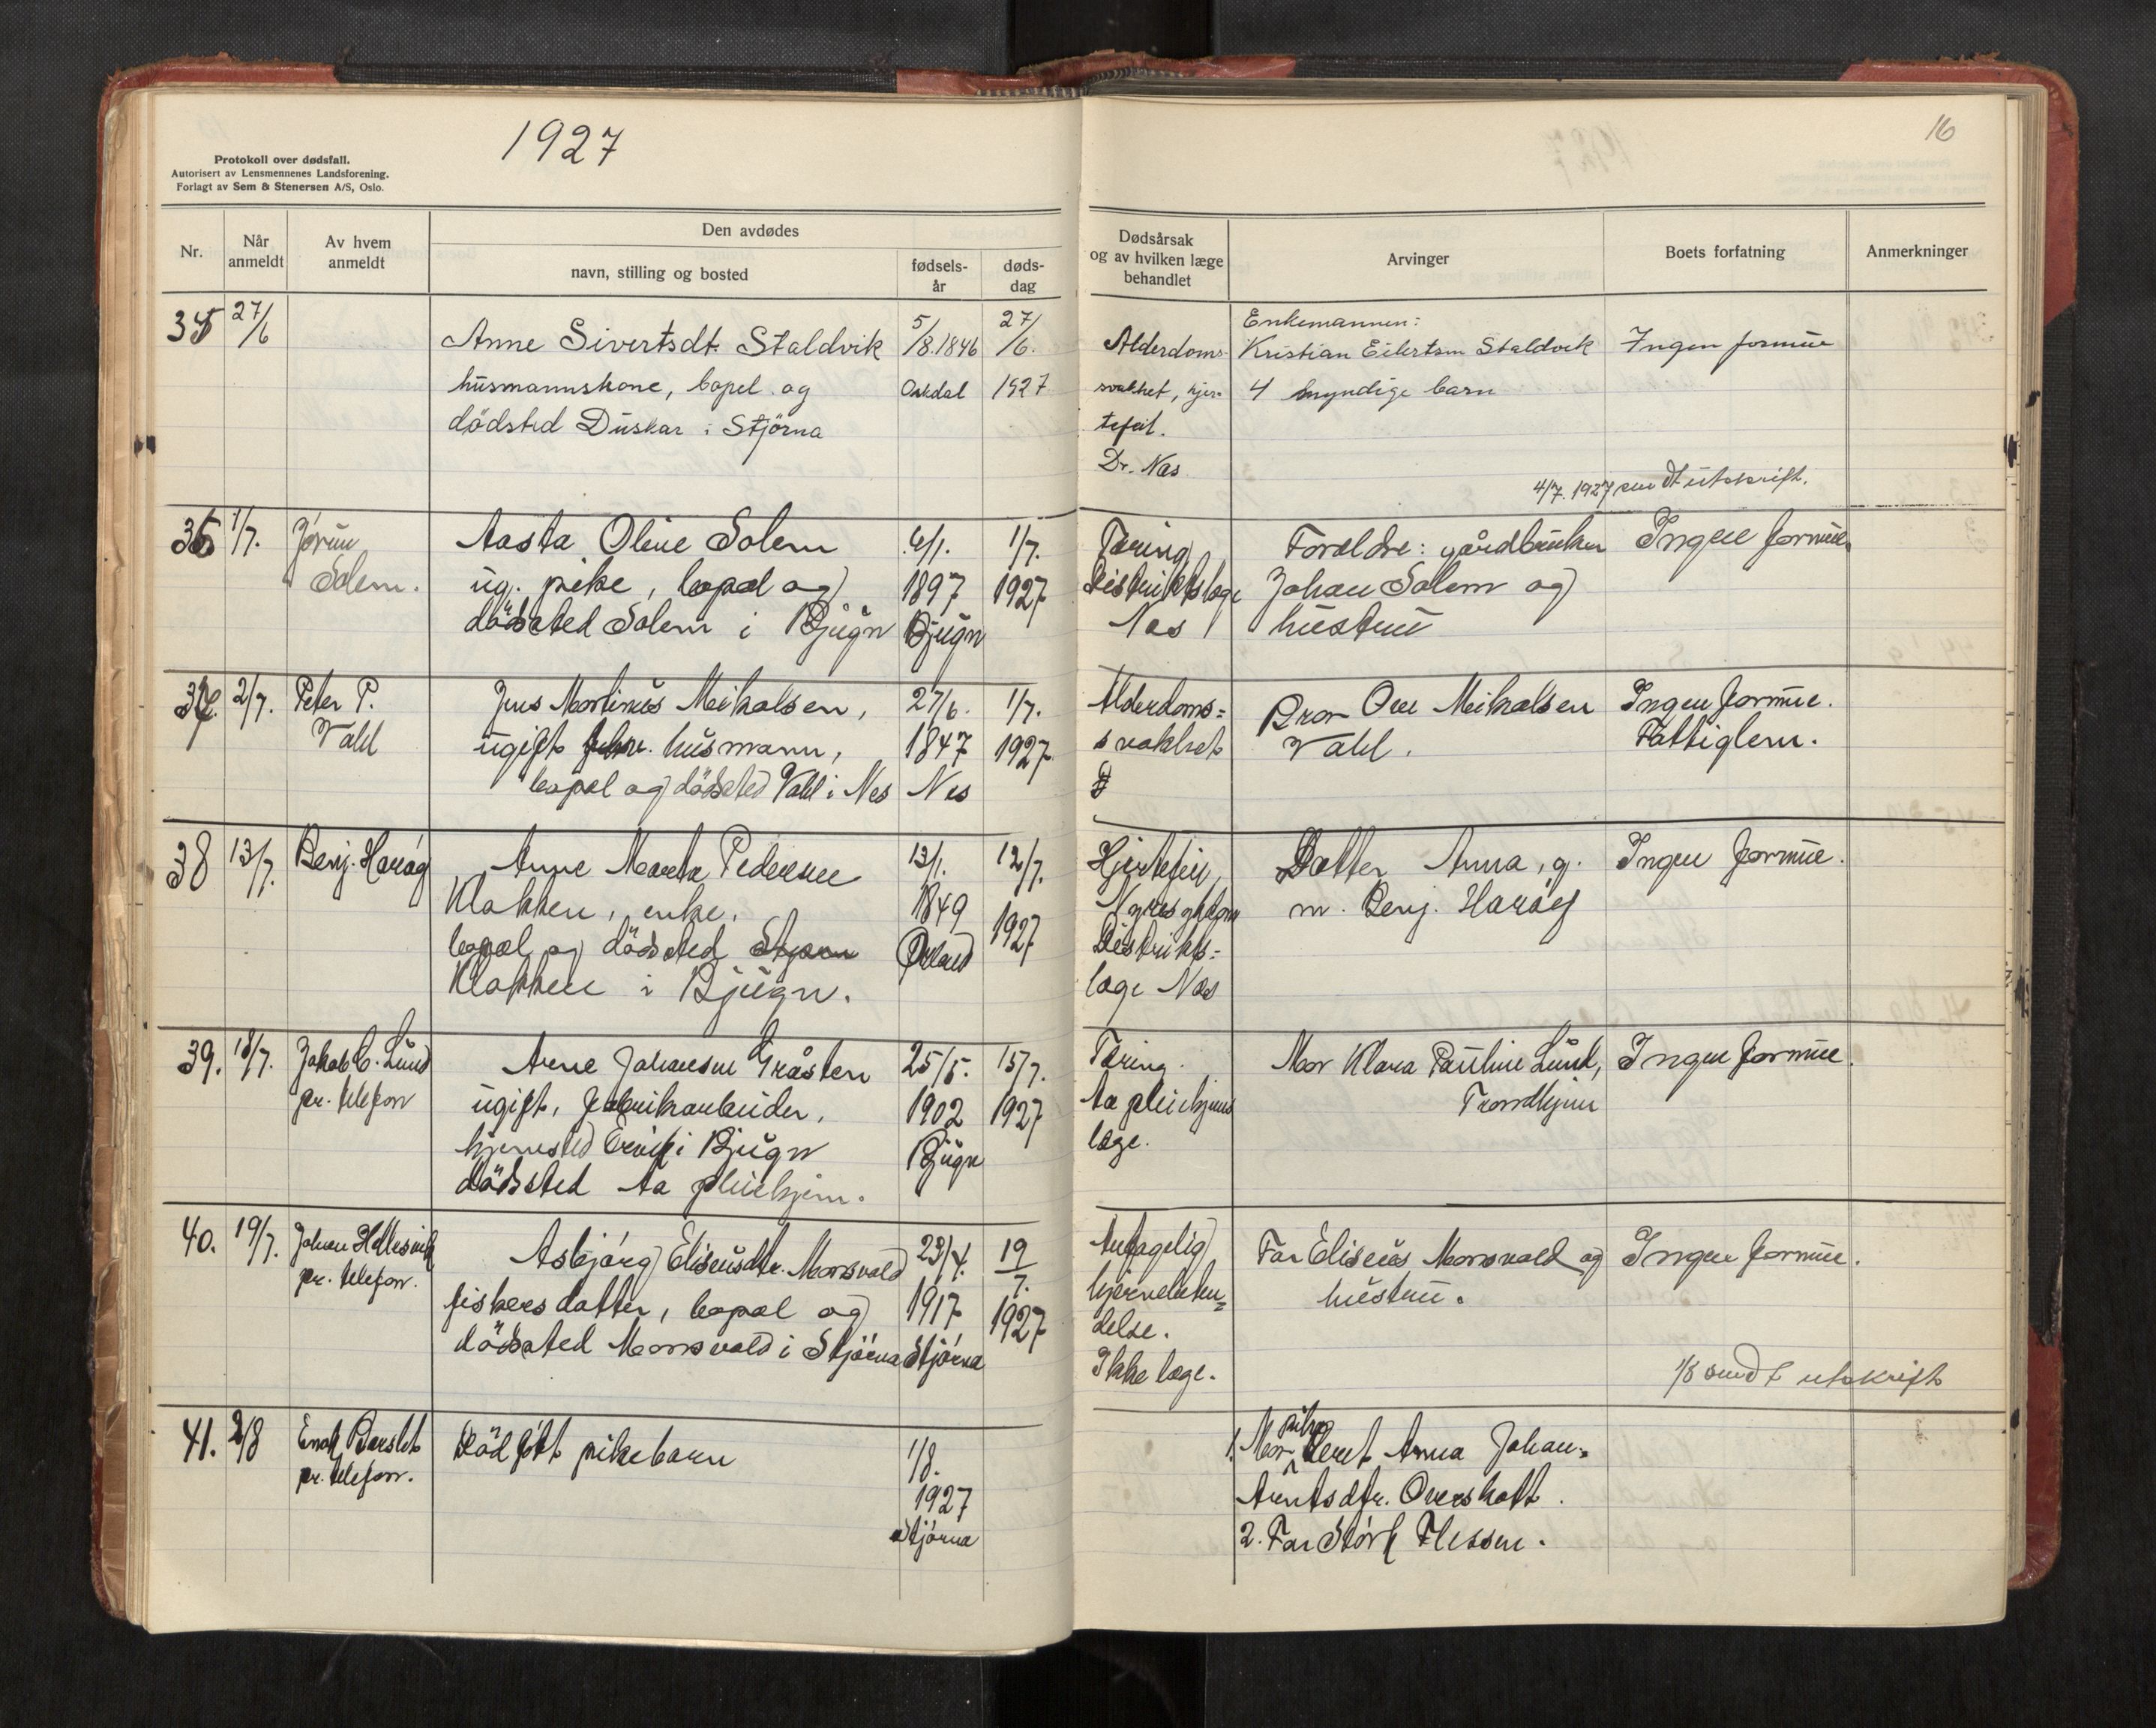 1927
16
Protokoll over dødsfall.
Autorisert av Lensmennenes Landsforening.
Forlagt av Sem & Stenersen A/S, Oslo.
Nr.
Når anmeldt
Av hvem anmeldt
Den avdødes
navn, stilling og bosted
fødsels-år
døds-dag
Dødsårsak og av hvilken læge behandlet
Arvinger
Boets forfatning
Anmerkninger
35
27/6
Anne Sivertsdt. Staldvik
husmannskone, bopel og
dödsted Duskar i Stjörna
5/8.1846
27/6.
1927
Alderdoms-
svakhet, hjer-
tefeil.
Dr. Næs
Enkemannen:
Kristian Eilertsen Staldvik
4 myndige barn
Ingen formue
4/7. 1927 sendt utskrift.
36
1/7.
Jörun
Solem.
Aasta Oline Solem
ug. pike, bopæl og
dödssted Solem i Bjugn
1897
Bjugn
1/7.
1927
Tæring
Distriktslæge
Næs
Forældre: gårdbruker
Johan Solem og
hustru
Ingen formue
37.
2/7.
Peter P.
Vall
Jens Martinus Mikalsen,
ugift husmann,
bopæl og dödssted Vall i Nes
27/6.
1847
Nes
1/7.
1927
Alderdoms=
svakhet
Bror Ove Mikalsen
Vall.
Ingen formue.
Fattiglem.
38
13/7.
Benj. Haråg
Anne Marta Pedersen
Klakken, enke.
bopæl og dödssted
Klakken i Bjugn.
13/1.
1849
Ørland
12/7.
1927
Hjertefeil,
Distrikts=
læge Næs
Datter Anna, g.
m. Benj. Haråg
Ingen formue.
39.
18/7.
Jakob C. Lund
pr. telefon
Arne Johansen Gråsten
ugift, fabrikarbeider,
hjemsted Ervik i Bjugn
dödssted Aa pleiehjem.
25/5.
1902
Bjugn
15/7.
1927
Tæring.
Aa pleiehjems
læge.
Mor Klara Pauline Lund,
Trondhjem
Ingen formue.
40.
19/7.
Johan Hellesvik
pr. telefon.
Asbjörg Eliseusdtr. Monsvold
fiskersdatter, bopæl og
dödssted Monsvold i Stjörna
23/4.
1917
Stjörna
19/7.
1927
Antagelig
hjernebeten=
delse.
Ikke læge.
Far Eliseus Monsvold og
hustru.
Ingen formue.
1/8 sendt utskrift
41.
2/8
pr. telefon.
Död födt pikebarn
1/8.
1927
Stjörna
1. Mor pike Beret Anna Johan=
Arntsdtr. Overskott.
2. Far